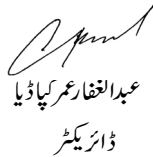 عبدالغفار عمر کپاڈیا
ڈائریکٹر